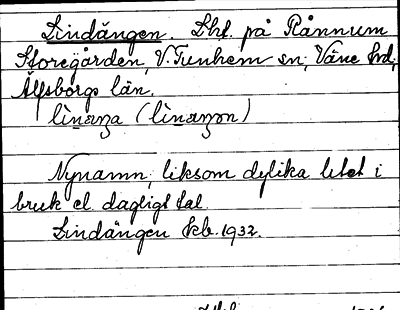 Lindängen. Lht. på Rånnum
Storegården, V. Tunhem sn; Väne hd;
Älfsborgs län.
lìnaŋa (lìnaŋən)
Nynamn, liksom dylika litet i
bruk el. dagligt tal.
Lindängen Ekb. 1932.